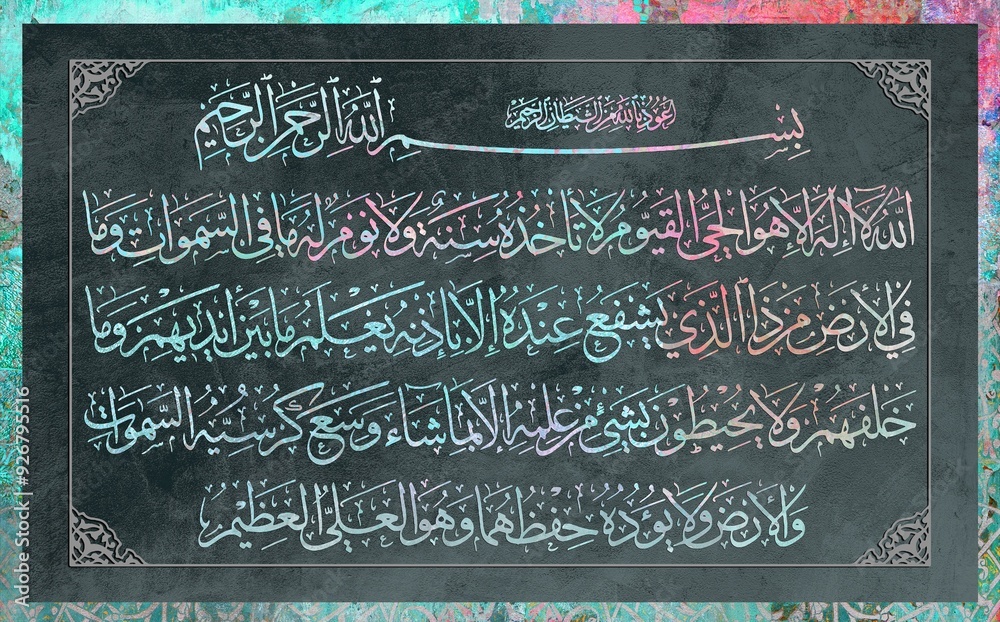 أعوذ بالله من الشيطان الرجيم
بسم الله الرحمن الرحيم
الله لا إله إلا هو الحي القيوم لا تأخذه سنة ولا نوم له ما في السموات وما
في الأرض من ذا الذي يشفع عنده إلا بإذنه يعلم ما بين أيديهم وما
خلفهم ولا يحيطون بشيء من علمه إلا بما شاء وسع كرسيه السموات
والأرض ولا يؤده حفظهما وهو العلي العظيم
Adobe Stock | #926795516